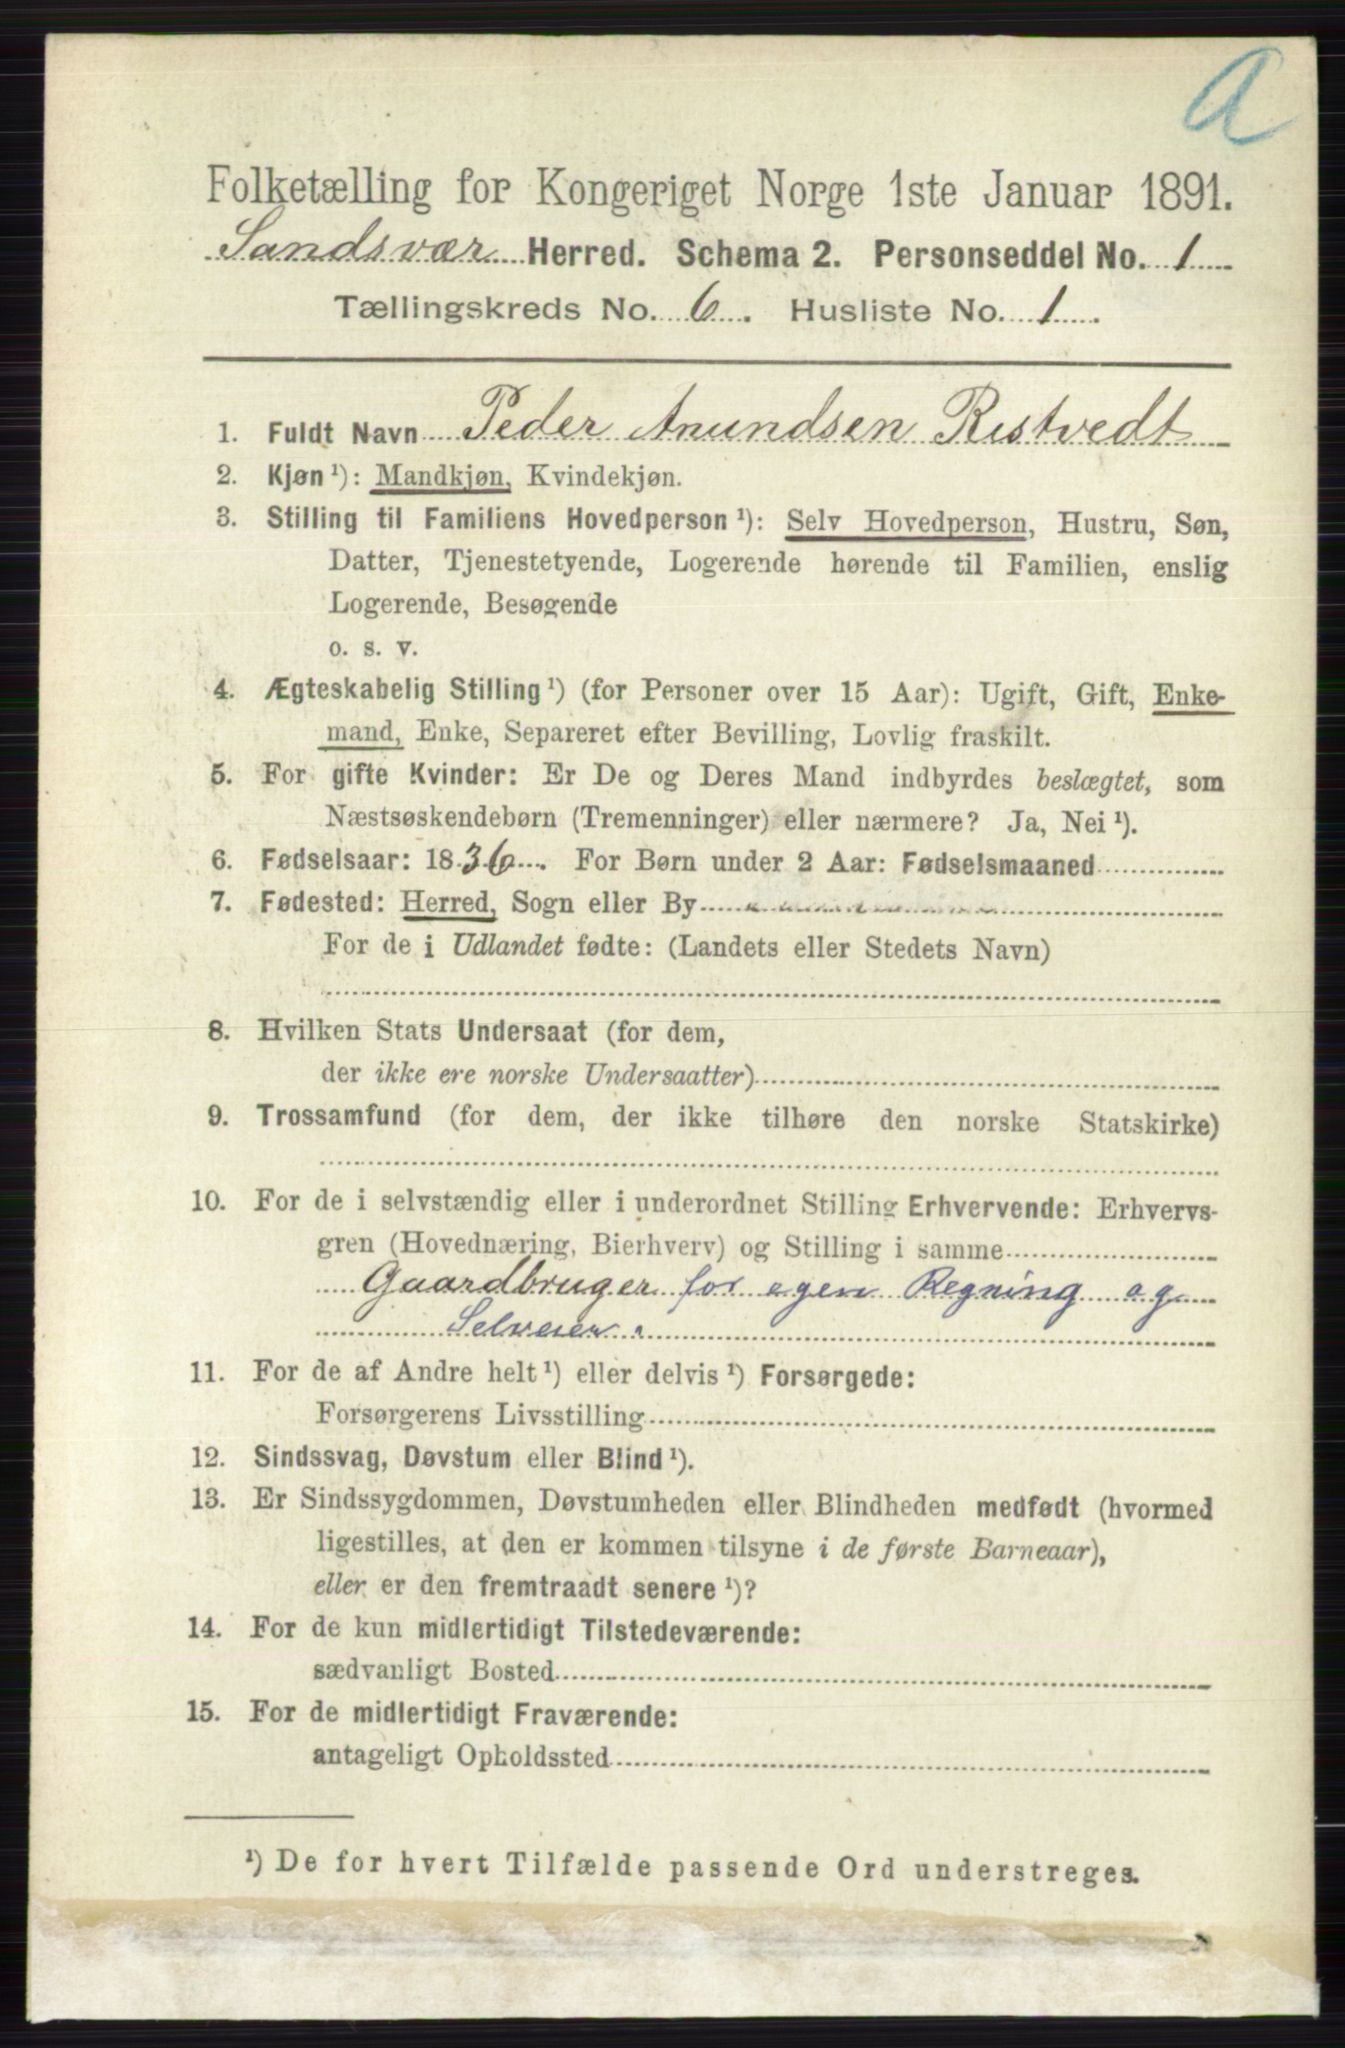 A
Folketælling for Kongeriget Norge 1ste Januar 1891.
Sandsvær Herred. Schema 2. Personseddel No. 1
Tællingskreds No. 6. Husliste No. 1.
1. Fuldt Navn Peder Anundsen Ristvedt
2. Kjøn ¹): Mandkjøn, Kvindekjøn.
3. Stilling til Familiens Hovedperson ¹): Selv Hovedperson, Hustru, Søn,
Datter, Tjenestetyende, Logerende hørende til Familien, enslig
Logerende, Besøgende
o. s. v.
4. Ægteskabelig Stilling ¹) (for Personer over 15 Aar): Ugift, Gift, Enke-
mand, Enke, Separeret efter Bevilling, Lovlig fraskilt.
5. For gifte Kvinder: Er De og Deres Mand indbyrdes beslægtet, som
Næstsøskendebørn (Tremenninger) eller nærmere? Ja, Nei ¹).
6. Fødselsaar: 1836. For Børn under 2 Aar: Fødselsmaaned
7. Fødested: Herred, Sogn eller By
For de i Udlandet fødte: (Landets eller Stedets Navn)
8. Hvilken Stats Undersaat (for dem,
der ikke ere norske Undersaatter)
9. Trossamfund (for dem, der ikke tilhøre den norske Statskirke)
10. For de i selvstændig eller i underordnet Stilling Erhvervende: Erhvervs-
gren (Hovednæring, Bierhverv) og Stilling i samme
Gaardbruger for egen Regning og
Selveier.
11. For de af Andre helt ¹) eller delvis ¹) Forsørgede:
Forsørgerens Livsstilling
12. Sindssvag, Døvstum eller Blind ¹).
13. Er Sindssygdommen, Døvstumheden eller Blindheden medfødt (hvormed
ligestilles, at den er kommen tilsyne i de første Barneaar),
eller er den fremtraadt senere ¹)?
14. For de kun midlertidigt Tilstedeværende:
sædvanligt Bosted
15. For de midlertidigt Fraværende:
antageligt Opholdssted
¹) De for hvert Tilfælde passende Ord understreges.